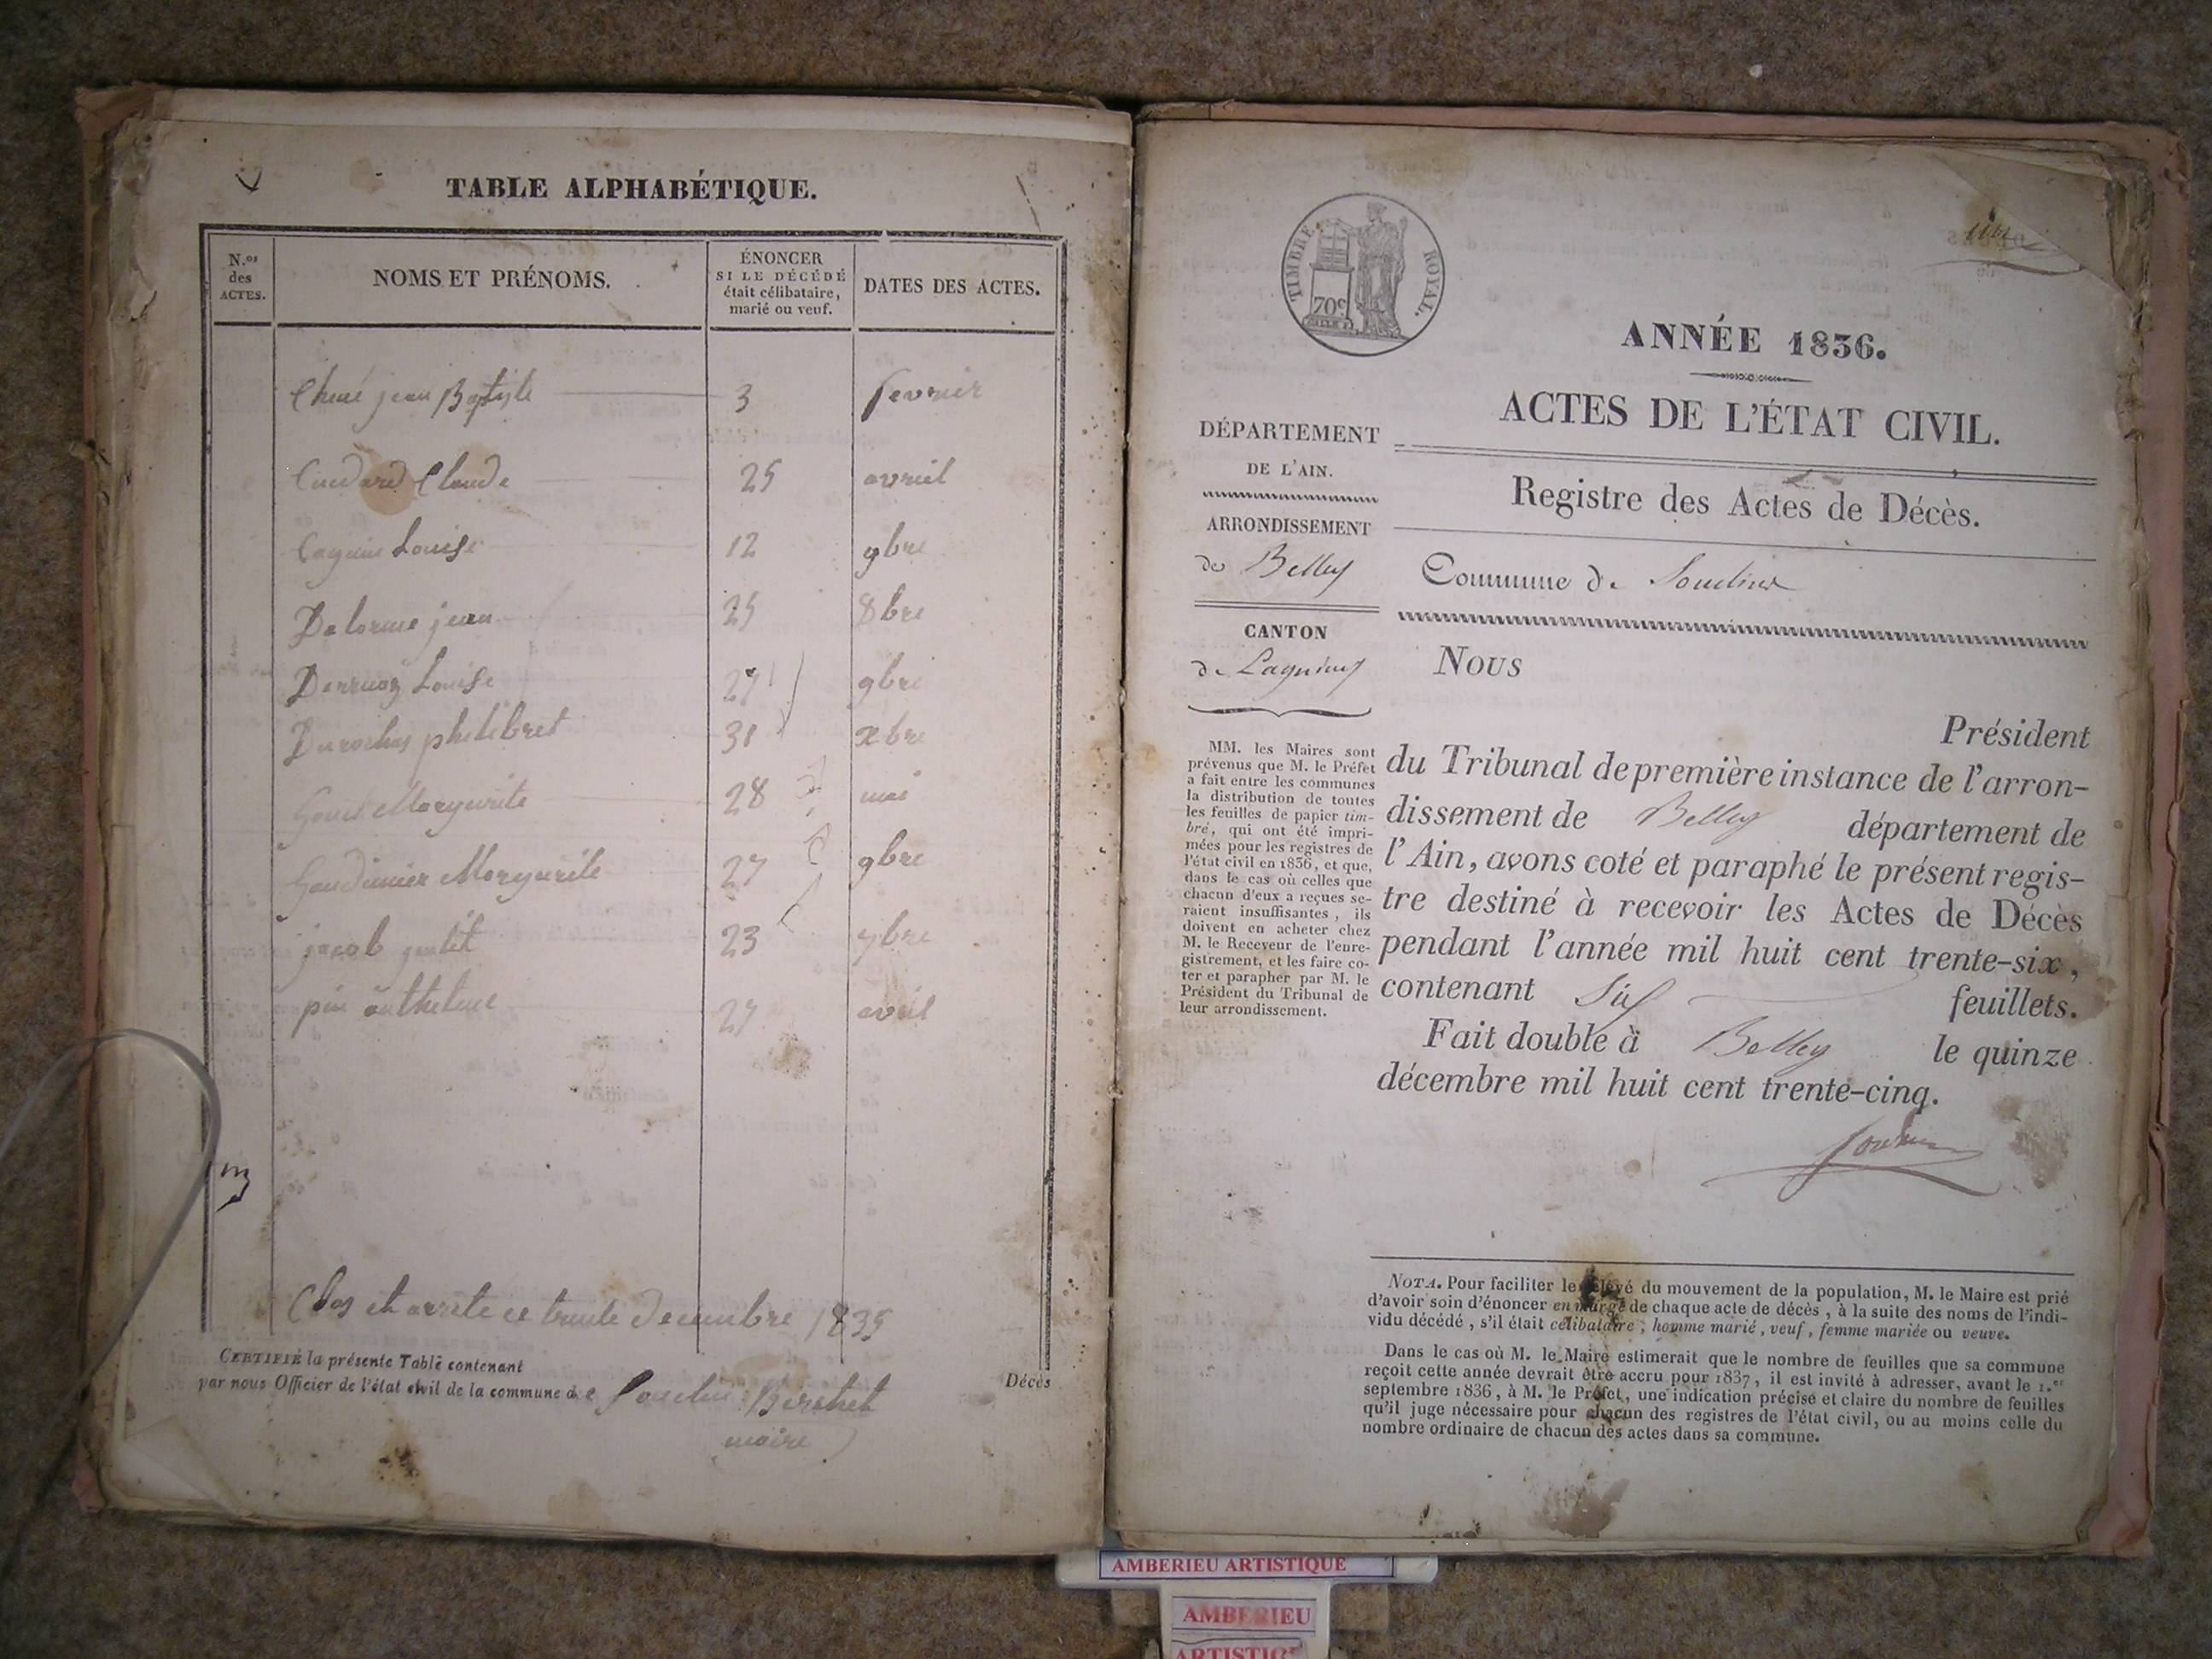 TABLE ALPHABÉTIQUE.
N.os des ACTES.
NOMS ET PRÉNOMS.
ÉNONCER SI LE DÉCÉDÉ était célibataire, marié ou veuf.
DATES DES ACTES.
jean Baptiste 3 fevrier
Claude 25 avril
Louise 12 9bre
Delorme jean 25 8bre
Louise 27 9bre
31 xbre
Margurite 28 mai
Margurite 27 9bre
jacob 23 7bre
pin anthelme 27 avril
Clos et arrete ce trente decembre 1835
CERTIFIÉ la présente Table contenant
par nous Officier de l'état civil de la commune de
maire
Décès
TIMBRE ROYAL.
70c
ANNÉE 1836.
ACTES DE L'ÉTAT CIVIL.
DÉPARTEMENT
DE L'AIN.
ARRONDISSEMENT
de Belley
CANTON
de Lagnieu
Registre des Actes de Décès.
Commune de
MM. les Maires sont
prévenus que M. le Préfet
a fait entre les communes
la distribution de toutes
les feuilles de papier tim-
bré, qui ont été impri-
mées pour les registres de
l'état civil en 1836, et que,
dans le cas où celles que
chacun d'eux a reçues se-
raient insuffisantes, ils
doivent en acheter chez
M. le Receveur de l'enre-
gistrement, et les faire co-
ter et parapher par M. le
Président du Tribunal de
leur arrondissement.
Nous
Président
du Tribunal de première instance de l'arron-
dissement de Belley département de
l'Ain, avons coté et paraphé le présent regis-
tre destiné à recevoir les Actes de Décès
pendant l'année mil huit cent trente-six,
contenant Six feuillets.
Fait double à Belley le quinze
décembre mil huit cent trente-cinq.
NOTA. Pour faciliter le relevé du mouvement de la population, M. le Maire est prié
d'avoir soin d'énoncer en marge de chaque acte de décès, à la suite des noms de l'indi-
vidu décédé, s'il était célibataire, homme marié, veuf, femme mariée ou veuve.
Dans le cas où M. le Maire estimerait que le nombre de feuilles que sa commune
reçoit cette année devrait être accru pour 1837, il est invité à adresser, avant le 1.er
septembre 1836, à M. le Préfet, une indication précise et claire du nombre de feuilles
qu'il juge nécessaire pour chacun des registres de l'état civil, ou au moins celle du
nombre ordinaire de chacun des actes dans sa commune.
AMBERIEU ARTISTIQUE
AMBERIEU
ARTISTIQUE